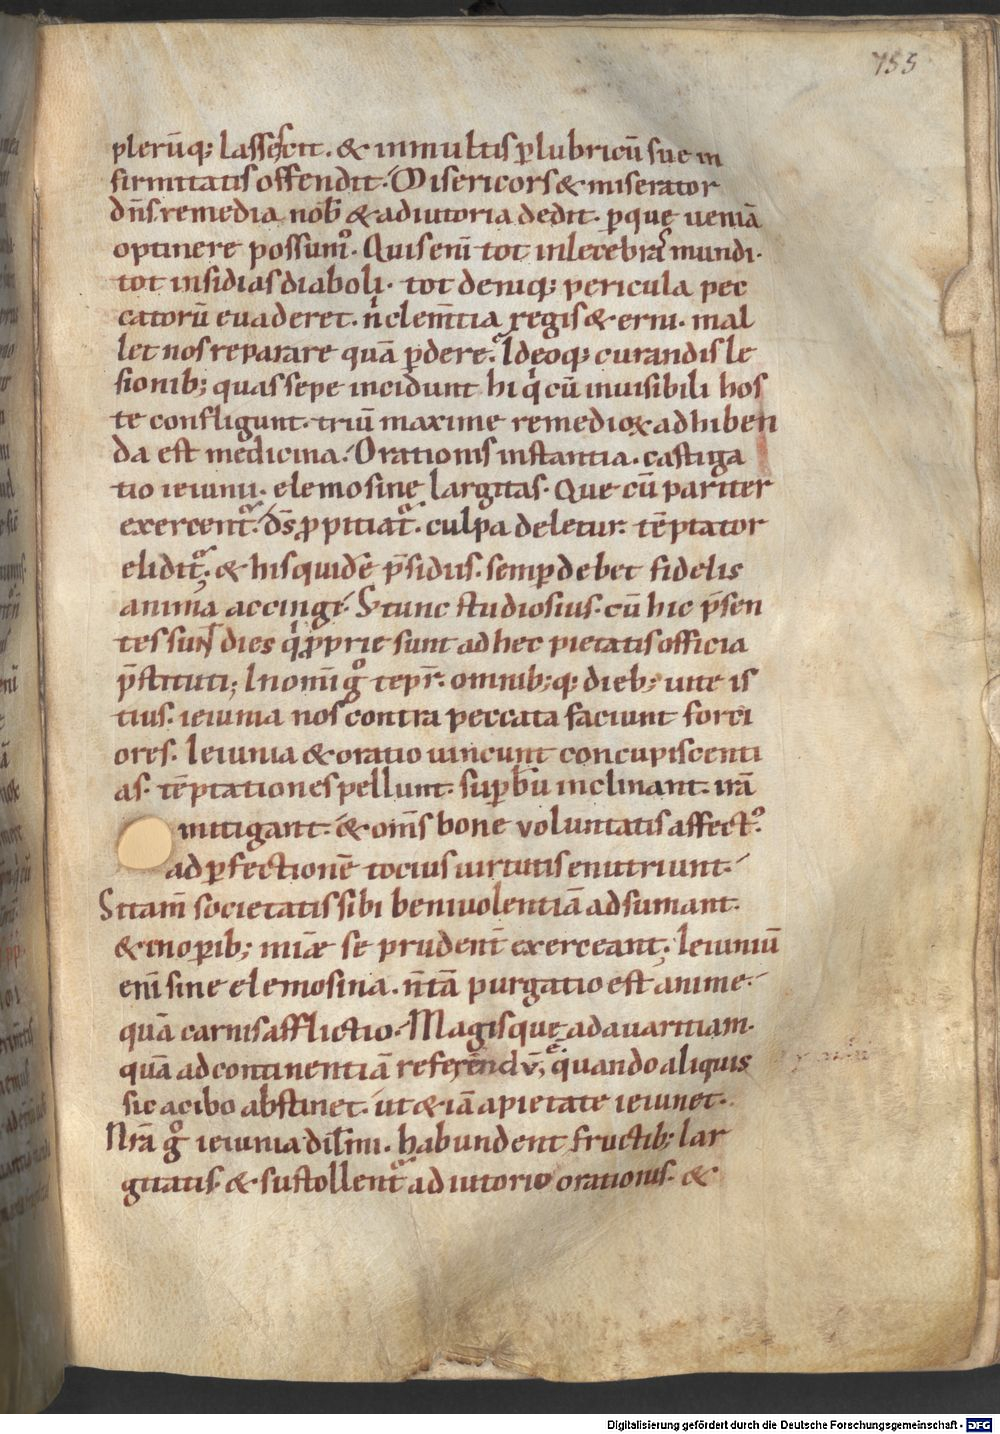 155
plerūq; lassescit. & inmultis ꝑlubricū sue in
firmitatis offendit. Misericors & miserator
dn̄s remedia nob̄ & adiutoria dedit. ꝑquę ueniā
optinere possum᷒. Quis enī tot inlecebras mundi.
tot insidias diaboli. tot deniq; pericula pec
catorū euaderet. n̄ clem̄tia regis & erni. mal
let nos reparare quā ꝑdere. Ideoq; curandis le
sionib; quas sepe incidunt hi qͥ cū inuisibili hos
te confligunt. triū maxime remedioꝝ adhiben
da est medicina. Orationis instantia. castiga
tio ieiunii. elemosinę largitas. Que cū pariter
exercent᷑. d̄s ꝓpitiat᷑. culpa deletur. tēptator
elidit᷑. & his quidē p̄sidiis. semꝑ debet fidelis
anima accingi. S; tunc studiosius. cū hic p̄sen
tes sunt dies qͥ ꝓprie sunt ad hec pietatis officia
p̄stituti; In om̄i gͦ tepr̄. omnib;q; dieb; uite is
tius. ieiunia nos contra peccata faciunt forti
ores. Ieiunia & oratio uincunt concupiscenti
as. tēptationes pellunt. suꝑbū inclinant. irā
mitigant. & om̄s bone voluntatis affect᷒.
ad ꝑfectionē tocius uirtutis enutriunt.
S; itam̄ societatis sibi beniuolentiā adsumant.
& inoꝑib; miæ se prudent̄ exerceant. Ieiuniū
enī sine elemosina. n̄ tā purgatio est anime.
quā carnis afflictio. Magisquę ad auaritiam.
quā ad continentiā referendū ē; quando aliquis
sic a cibo abstinet. ut & iā a pietate ieiunet.
Nr̄a gͦ ieiunia dil̄mi. habundent fructib; lar
gitatis. & sustollent᷑ adiutorio orationis. &
Digitalisierung gefördert durch die Deutsche Forschungsgemeinschaft - DFG